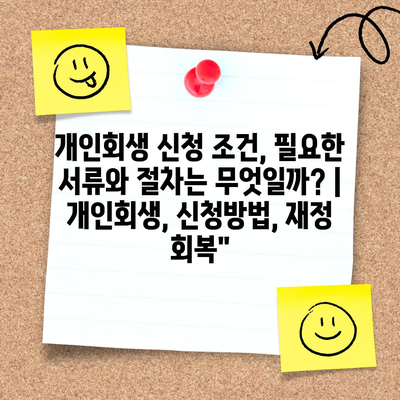 개인회생 신청 조건, 필요한
서류와 절차는 무엇일까? |
개인회생, 신청방법, 재정
회복"